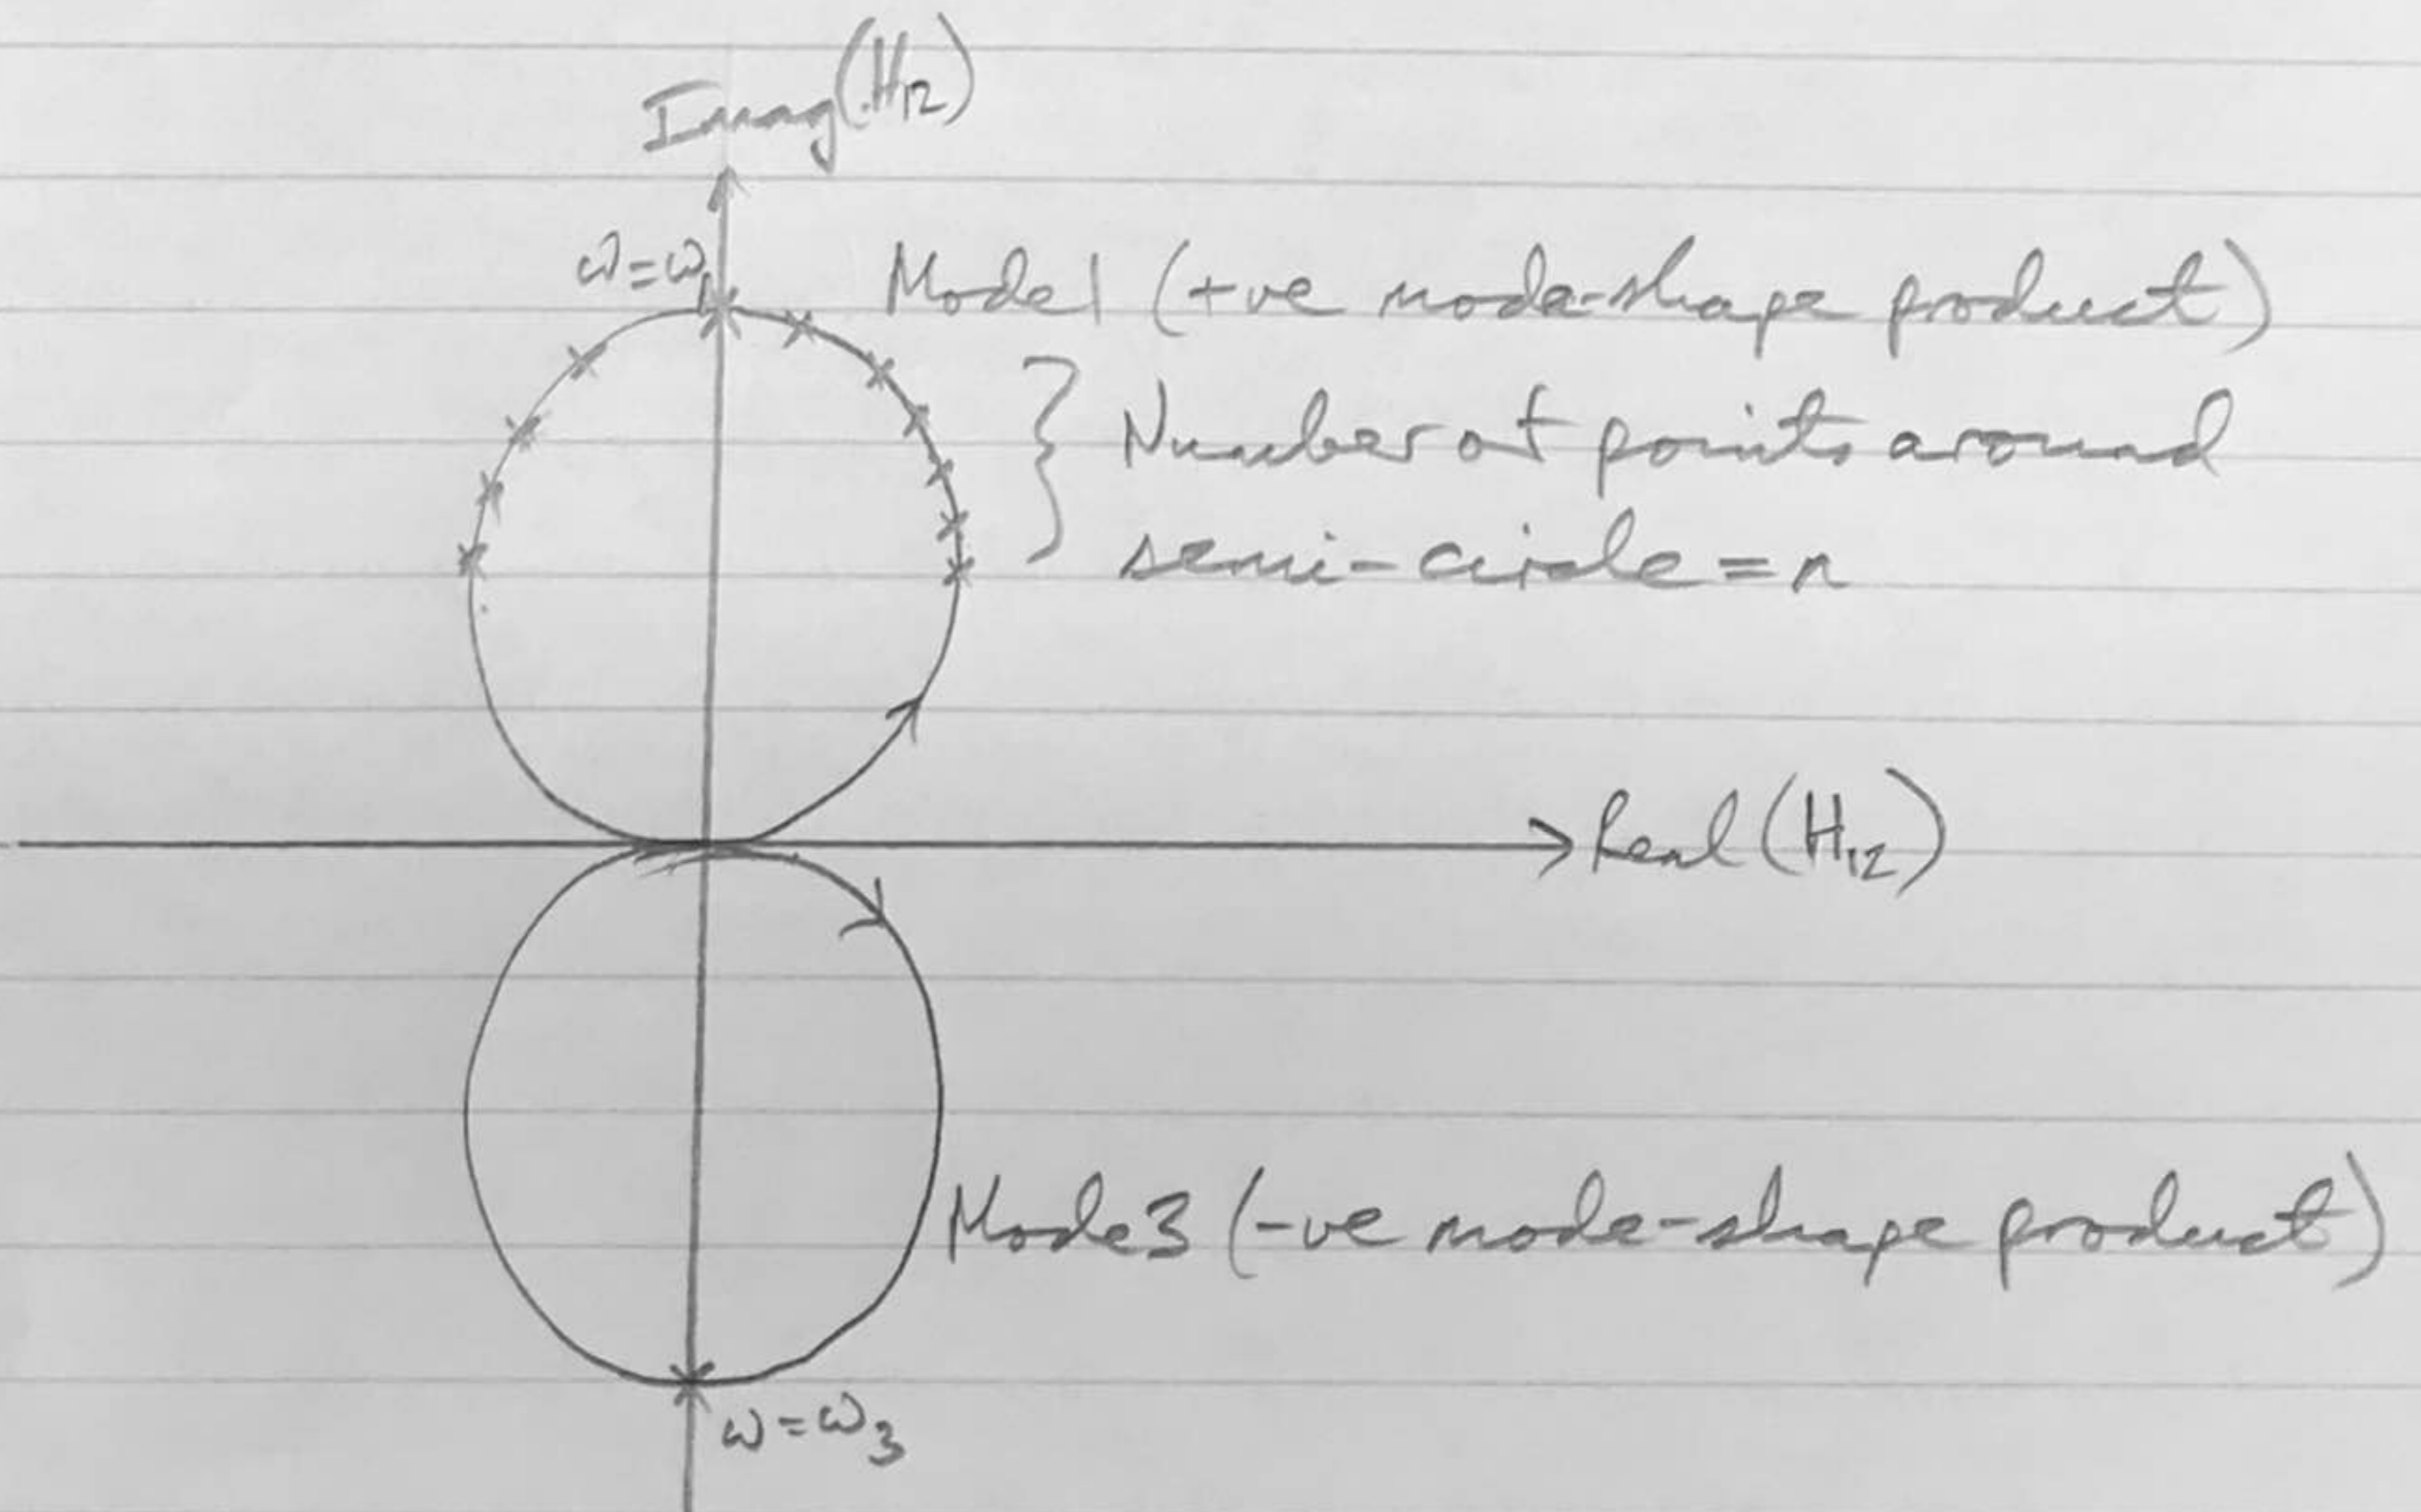 Imag(H12)
ω=ω1
Mode 1 (+ve mode-shape product)
} Number of points around
semi-circle = n
Real(H12)
Mode 3 (-ve mode-shape product)
ω=ω3